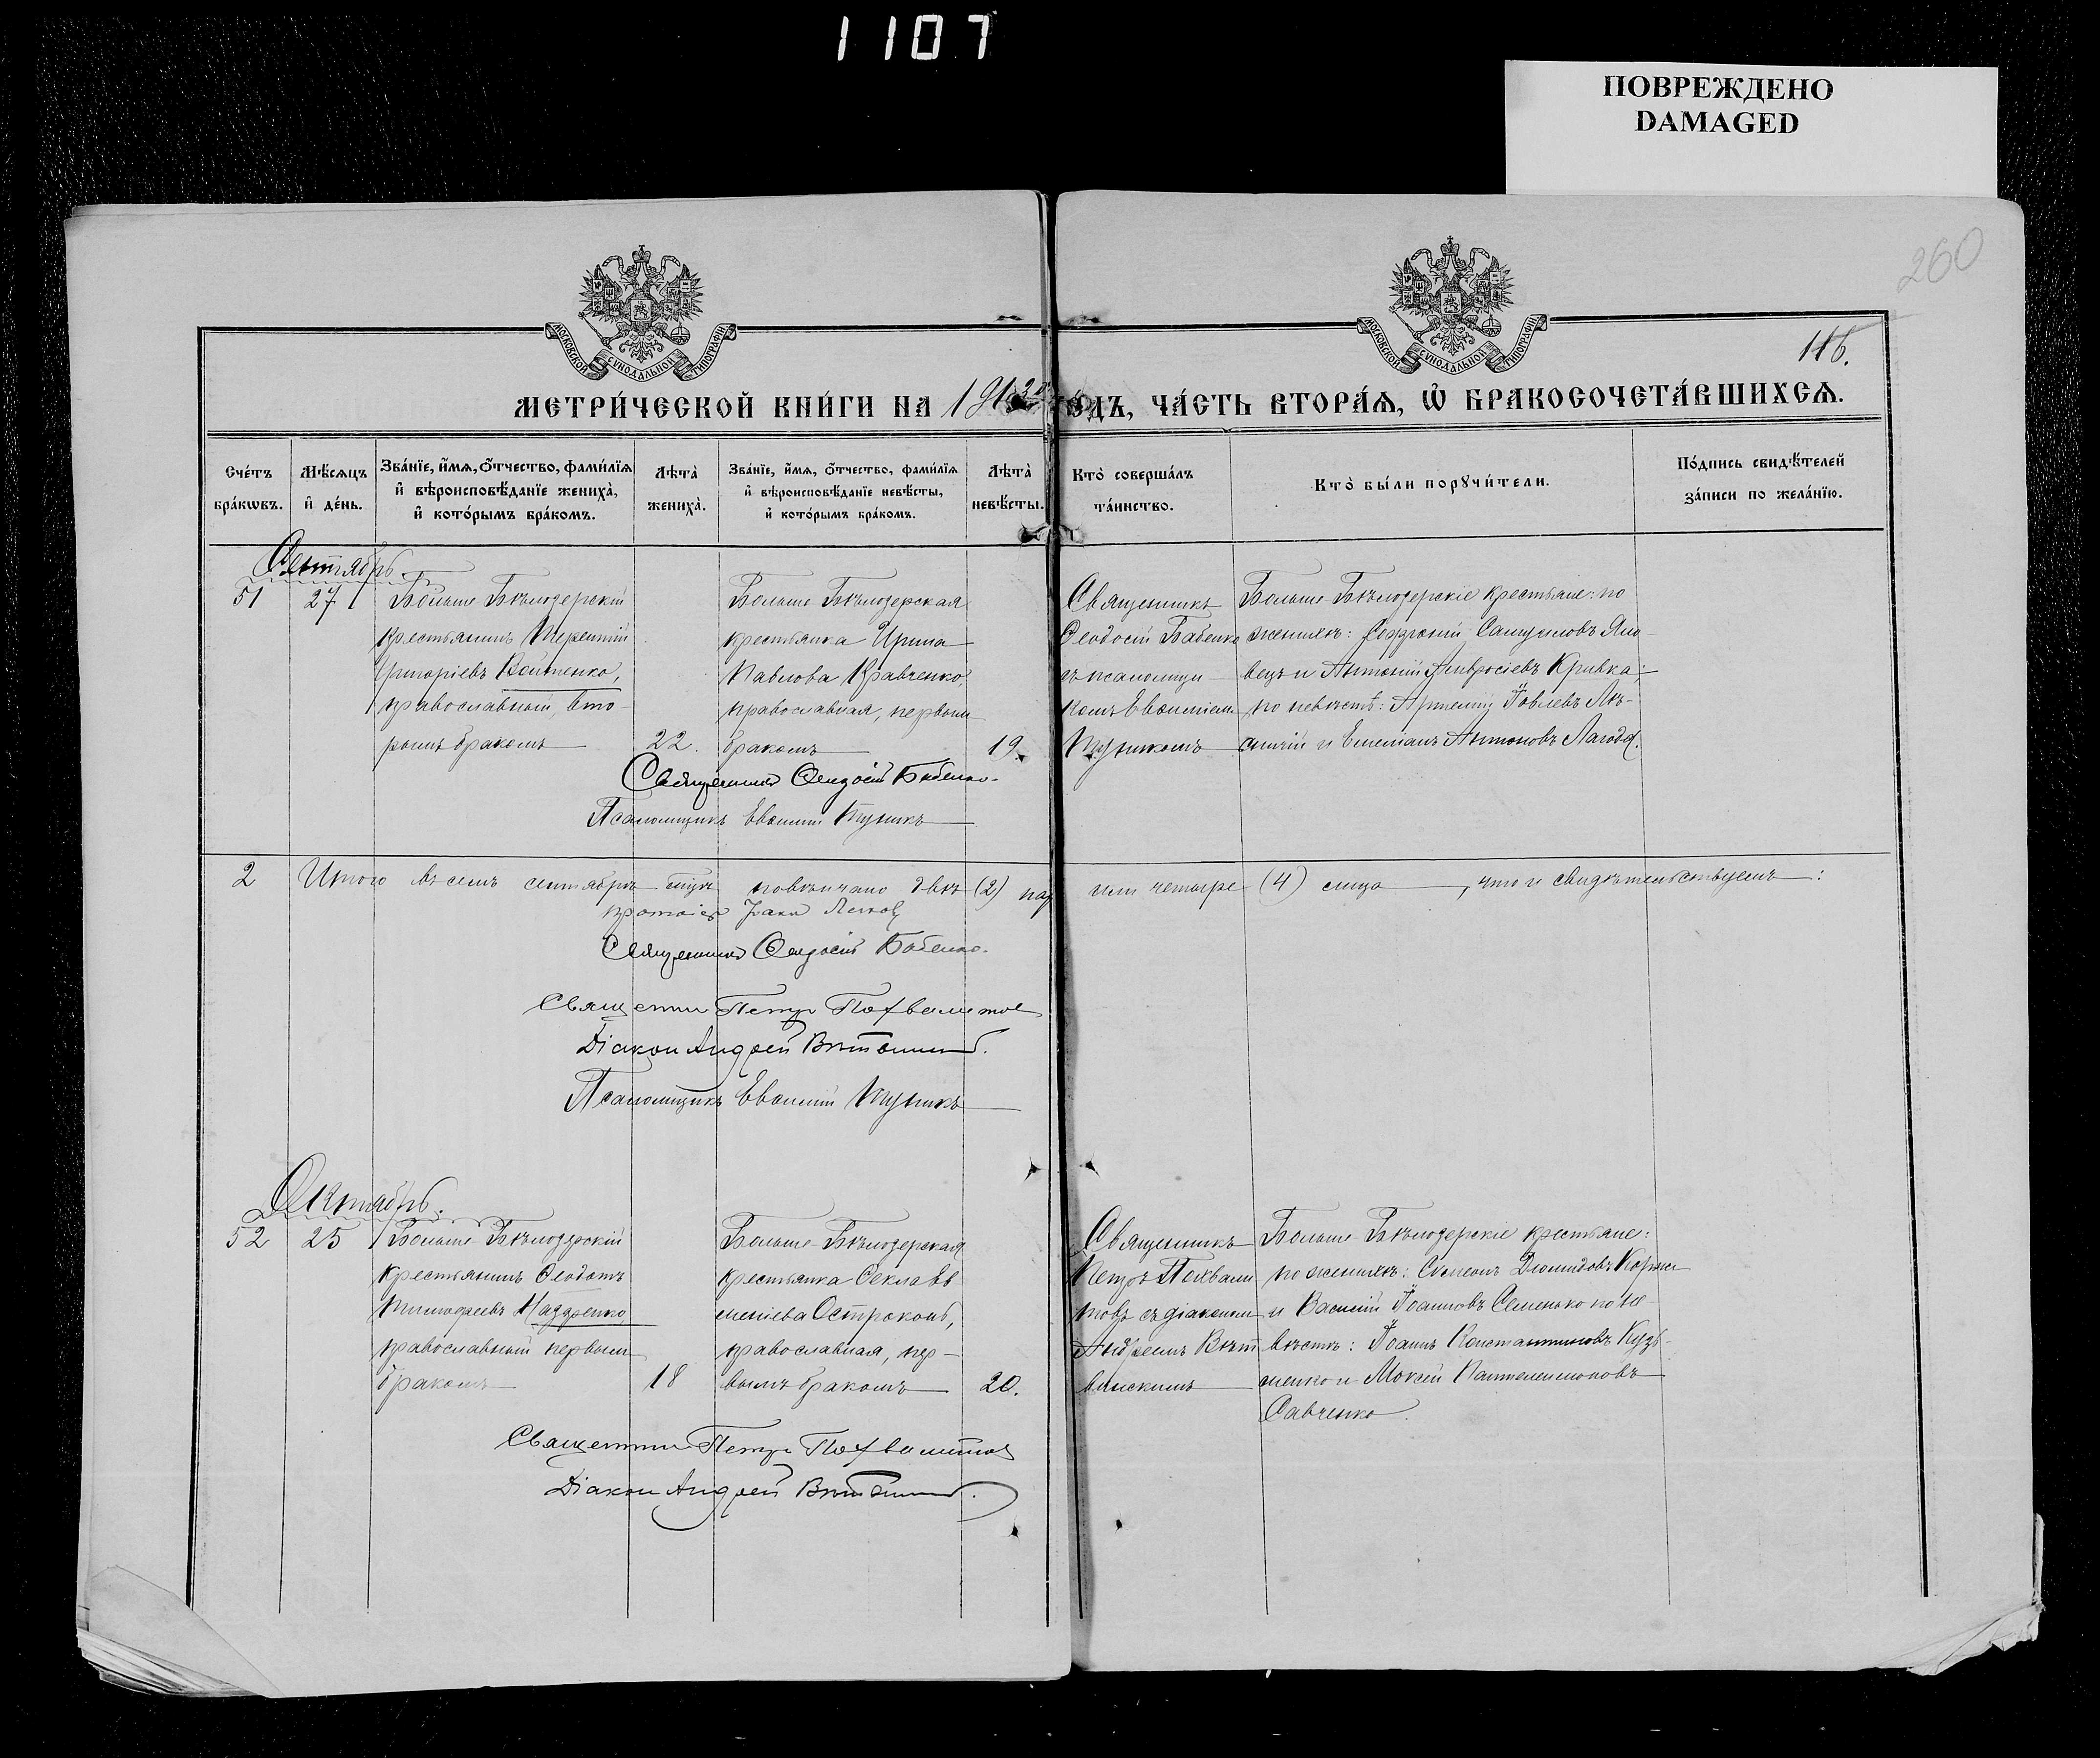 1107
ПОВРЕЖДЕНО
DAMAGED
260
116.
МОСКОВСКОЙ СѴНОДАЛЬНОЙ ТИПОГРАФІИ
МОСКОВСКОЙ СѴНОДАЛЬНОЙ ТИПОГРАФІИ
МЕТРИ́ЧЕСКОЙ КНИ́ГИ НА 1913 ГОДЪ, ЧА́СТЬ ВТОРА́Ѧ, Ѡ БРАКОСОЧЕТА́ВШИХСѦ.
Сче́тъ бра́кѡвъ.
Мѣ́сѧцъ и҆ де́нь.
Зва́нїе, и҆́мѧ, ѻ҆́тчество, фами́лїѧ и҆ вѣроисповѣ́данїе жениха̀, и҆ кото́рымъ бра́комъ.
Лѣта̀ жениха̀.
Зва́нїе, и҆́мѧ, ѻ҆́тчество, фами́лїѧ и҆ вѣроисповѣ́данїе невѣ́сты, и҆ кото́рымъ бра́комъ.
Лѣта̀ невѣ́сты.
Кто̀ соверша́лъ та́инство.
Кто̀ бы́ли порꙋчи́тели.
По́дпись свидѣ́телей за́писи по жела́нїю.
Сентябрь.
51
27
Больше Бѣлозерскій
крестьянинъ Терентій
Григоріевъ Войтенко,
православный, вто-
рымъ бракомъ
22.
Больше Бѣлозерская
крестьянка Ирина
Павлова Кравченко,
православная, первым
бракомъ
19.
Священникъ
Ѳеодосій Бабенко
съ псаломщи-
комъ Евѳиміем
Пузикомъ
Больше-Бѣлозерскіе крестьяне: по
женихѣ: Самуиловъ Яло-
вецъ и Антоній Амвросіевъ Кривка:
по невѣстѣ: Артемій Іовлевъ
и Емеліанъ Антоновъ Лагода.
Священникъ Ѳеодосій Бабенко.
Псаломщикъ Евѳимій Пузикъ
2
Итого въ семъ сентябрѣ м-цѣ повѣнчано двѣ (2) пар
или четыре (4) лица, что и свидѣтельствуемъ:
Священникъ Ѳеодосій Бабенко.
Священникъ Петръ Похвалитовъ
Діаконъ Андрей
Псаломщикъ Евѳимій Пузикъ
Октябрь.
52
25
Больше Бѣлозерскій
крестьянинъ Ѳеодотъ
Тимофеевъ
православный первымъ
бракомъ
18
Больше-Бѣлозерская
крестьянка Ѳекла Ев
меніева Остроконь,
православная, пер-
вымъ бракомъ
20.
Священникъ
Петръ Похвали
товъ съ діаконом
Андреемъ Вѣт
винскимъ
Больше-Бѣлозерскіе крестьяне:
по женихѣ: Сѵмеонъ Діомидовъ Коржъ
и Василій Іоанновъ Семенько по не-
вѣстѣ: Іоаннъ Константиновъ Кузь-
менко и Мокій Пантелеимоновъ
Савченко.
Священникъ Петръ Похвалитовъ
Діаконъ Андрей